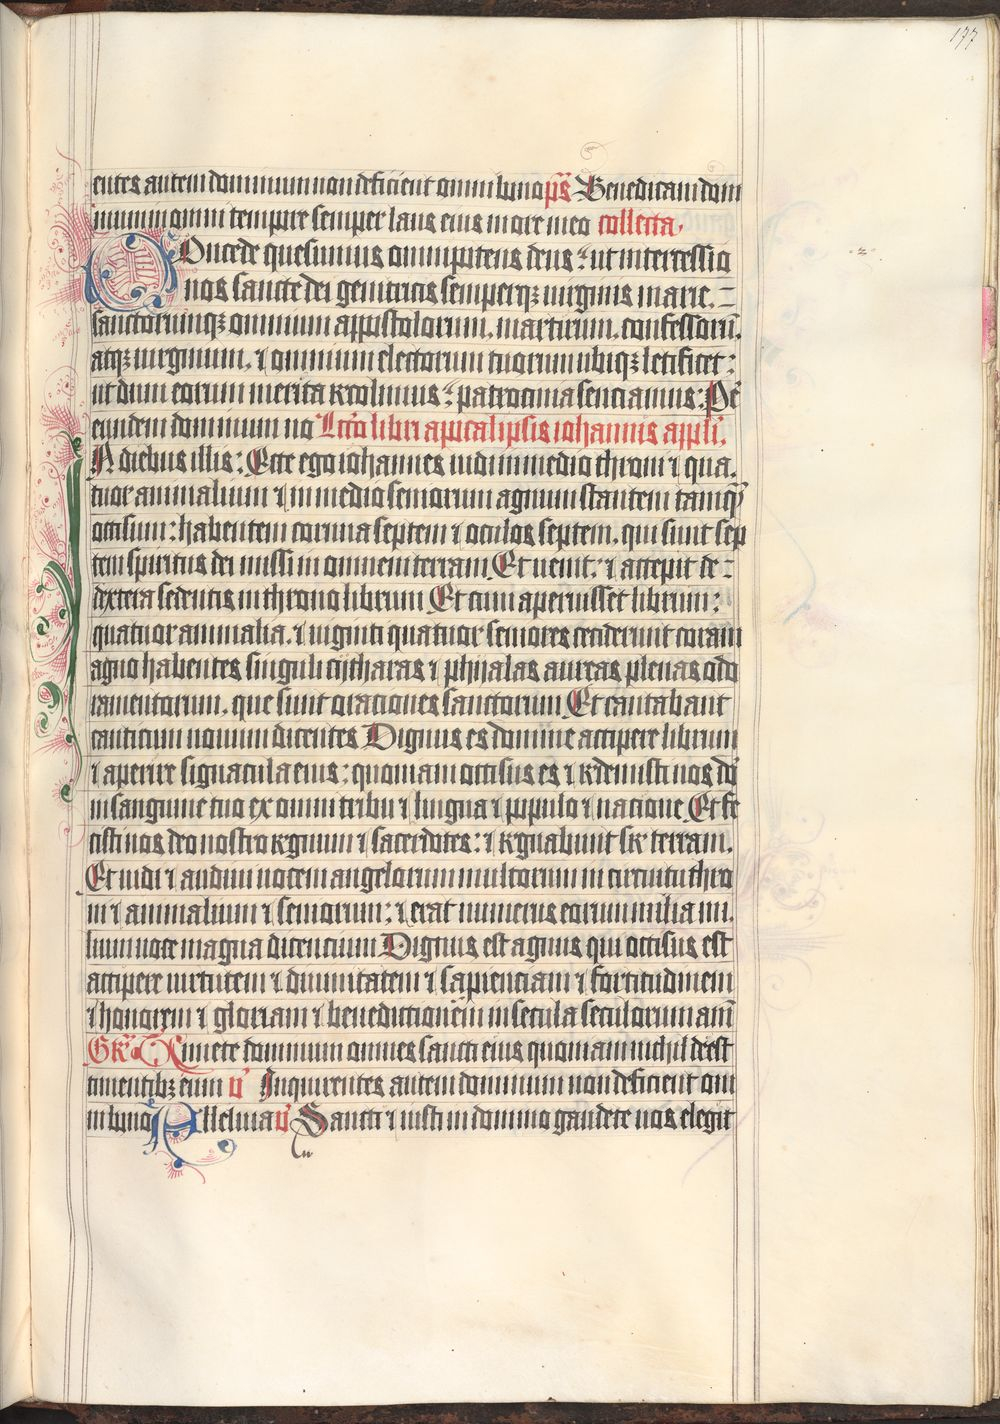 177
entes autem dominum non deficient omni bono ps̄ Benedicam dom
minum omni tempore semper laus eius in ore meo collecta.
Concede quesumus omnipotens deus: ut intercessio
nos sancte dei genitricis semperqꝫ uirginis marie. =
sanctorumqꝫ omnium appostolorum. martirum. confessorū.
atqꝫ uirginum. ⁊ omnium electorum tuorum ubiqꝫ letificet:
ut dum eorum merita recolimus: patrocinia senciamus: Pe᷑
eundem dominum no Lcćo libri apocalipsis iohannis appłi.
In diebus illis: Ecce ego iohannes uidi in medio throni ⁊ qua.
tuor animalium ⁊ in medio seniorum agnum stantem tamqȝ
occisum: habentem cornua septem ⁊ oculos septem. qui sunt sep
tem spiritus dei missi in omnem terram Et uenit: ⁊ accepit de =
dextera sedentis in throno librum Et cum aperuisset librum:
quatuor animalia. ⁊ uiginti quatuor seniores ceciderunt coram
agno habentes singuli cijtharas ⁊ phijalas aureas plenas odo
ramentorum. que sunt oraciones sanctorum Et cantabant
canticum nouum dicentes Dignus es domine accipere librum
⁊ aperire signacula eius: quoniam occisus es ⁊ redemisti nos dō
in sanguine tuo ex omni tribu ⁊ lingua ⁊ populo ⁊ nacione Et fe
cisti nos deo nostro regnum ⁊ sacerdotes: ⁊ regnabunt sr̄ terram.
Et uidi ⁊ audiui uocem angelorum multorum in circuitu thro
ni ⁊ animalium ⁊ seniorum: ⁊ erat numerus eorum milia mi.
lium uoce magna dicencium Dignus est agnus qui occisus est
accipere uirtutem ⁊ diuinitatem ⁊ sapienciam ⁊ fortitudinem
⁊ honorem ⁊ gloriam ⁊ benedictionem in secula seculorum am̄
Gr̄ Timete dominum omnes sancti eius quoniam nichil deest
timentibꝫ eum v̾ Inquirentes autem dominum non deficient om
ni bono Alleluia v̾ Sancti ⁊ iusti in domino gaudete uos elegit